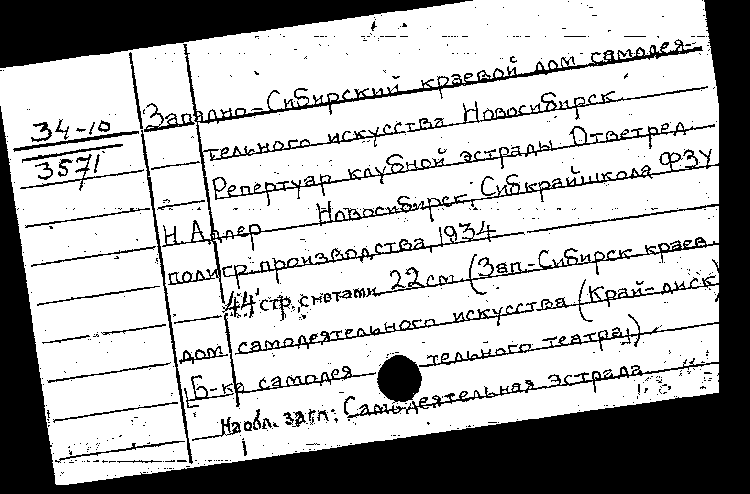 34-10
3571
Западно-Сибирский краевой дом самодея-
тельного искусства Новосибирск
Репертуар клубной эстрады Ответред.
Н. Адлер Новосибирск, Сибкрайшкола ФЗУ
полигр. производства, 1934
44 стр. с нотами 22 см. (Зап.-Сибирск краев.
дом самодеятельного искусства (Край-диск)
Б-ка самодея тельного театра).
На обл. загл: Самодеятельная эстрада